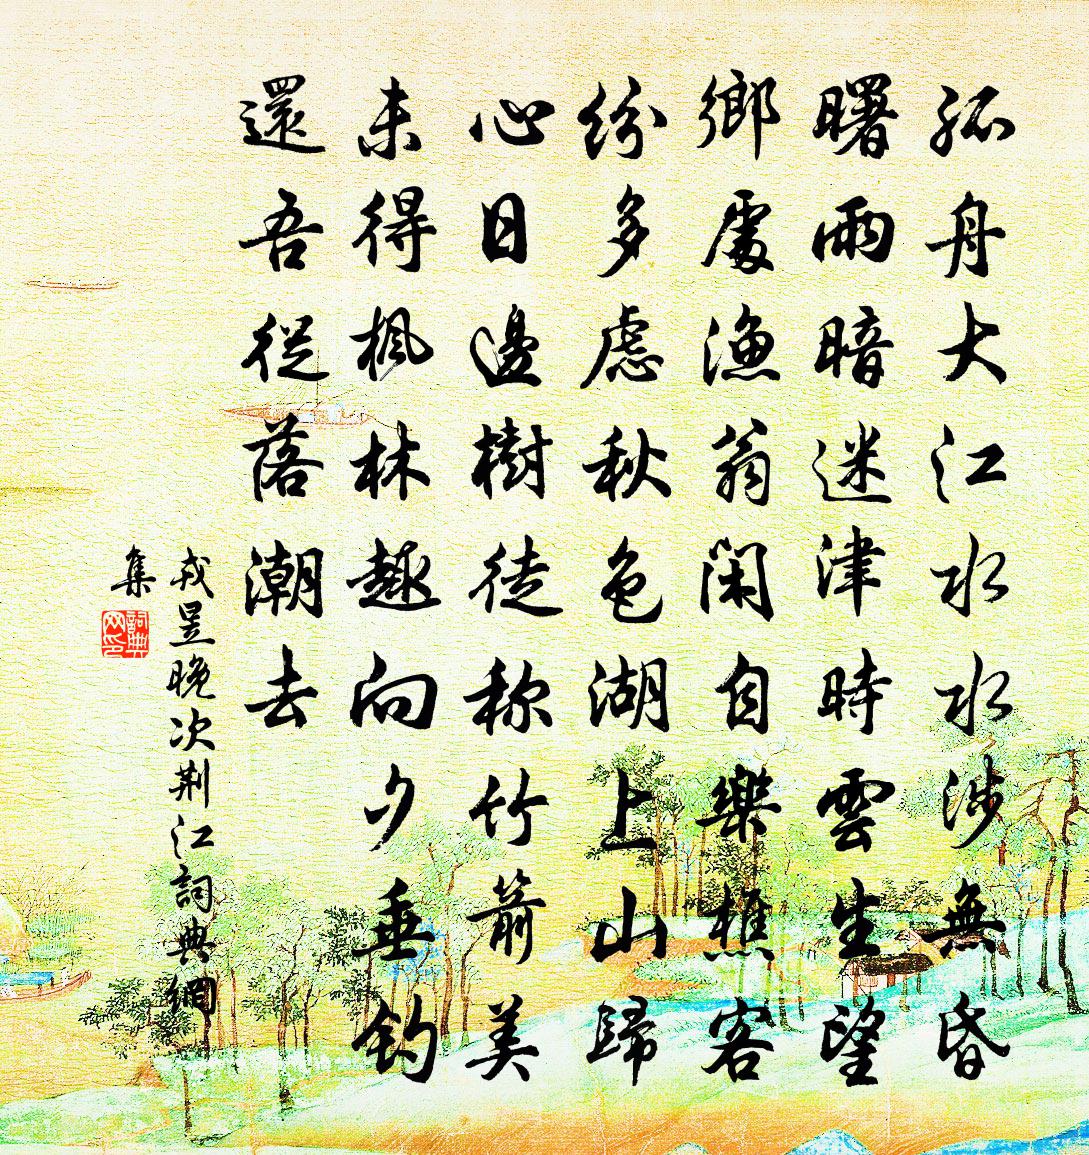 孤舟大江水水涉無昏
曙雨暗迷津時雲生望
鄉處漁翁閑自樂樵客
紛多慮秋色湖上山歸
心日邊樹徒称竹箭美
未得楓林趣向夕垂釣
還吾從落潮去
戎昱晚次荆江詞典網
集
詞典
网印